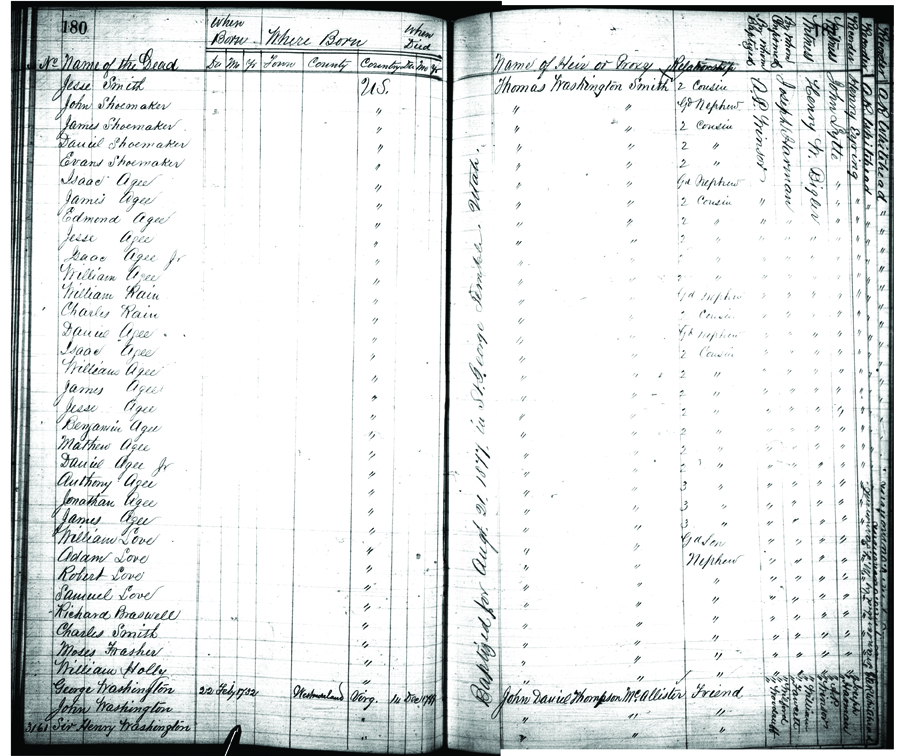 180
When Born Where Born When Died
No Name of the Dead Da Mo Yr Town County County Da Mo Yr Name of Heir or Proxy Relationship
Jesse Smith U.S. Thomas Washington Smith 2 Cousin
John Shoemaker " " " Gd Nephew
James Shoemaker " " " 2 Cousin
Daniel Shoemaker " " " 2 "
Evans Shoemaker " " " 2 "
Isaac Agee " " " Gd Nephew
James Agee " " " 2 Cousin
Edmond Agee " " " 2 "
Jesse Agee " " " 2 "
Isaac Agee Jr " " " 2 "
William Agee " " " 2 "
William Rain " " " Gd Nephew
Charles Rain " " " 2 Cousin
Daniel Agee " " " Gd Nephew
Isaac Agee " " " 2 Cousin
William Agee " " " 2 "
James Agee " " " 2 "
Jesse Agee " " " 2 "
Benjamin Agee " " " 2 "
Mathew Agee " " " 2 "
Daniel Agee Jr " " " 2 "
Anthony Agee " " " 3 "
Jonathan Agee " " " 3 "
James Agee " " " 3 "
William Love " " " Gd Son
Adam Love " " " Nephew
Robert Love " " " "
Samuel Love " " " "
Richard Braswell " " " "
Charles Smith " " " "
Moses Frasher " " " "
William Holly " " " "
George Washington 22 Feby 1732 Westmoreland Virg. 14 Dec 1799 John Daniel Thompson McAllister Friend
John Washington " " "
3161 Sir Henry Washington " " "
Baptized for Augt. 21. 1877, in St. George Temple Utah.
Recorder A.K. Whitehead
Recorder A.K. Whitehead
Attender Henry Ewing
Witness John Lytle
Witness Henry W. Bigler
By whom Confirmed Joseph Harman
By whom Baptized A.P. Winsor